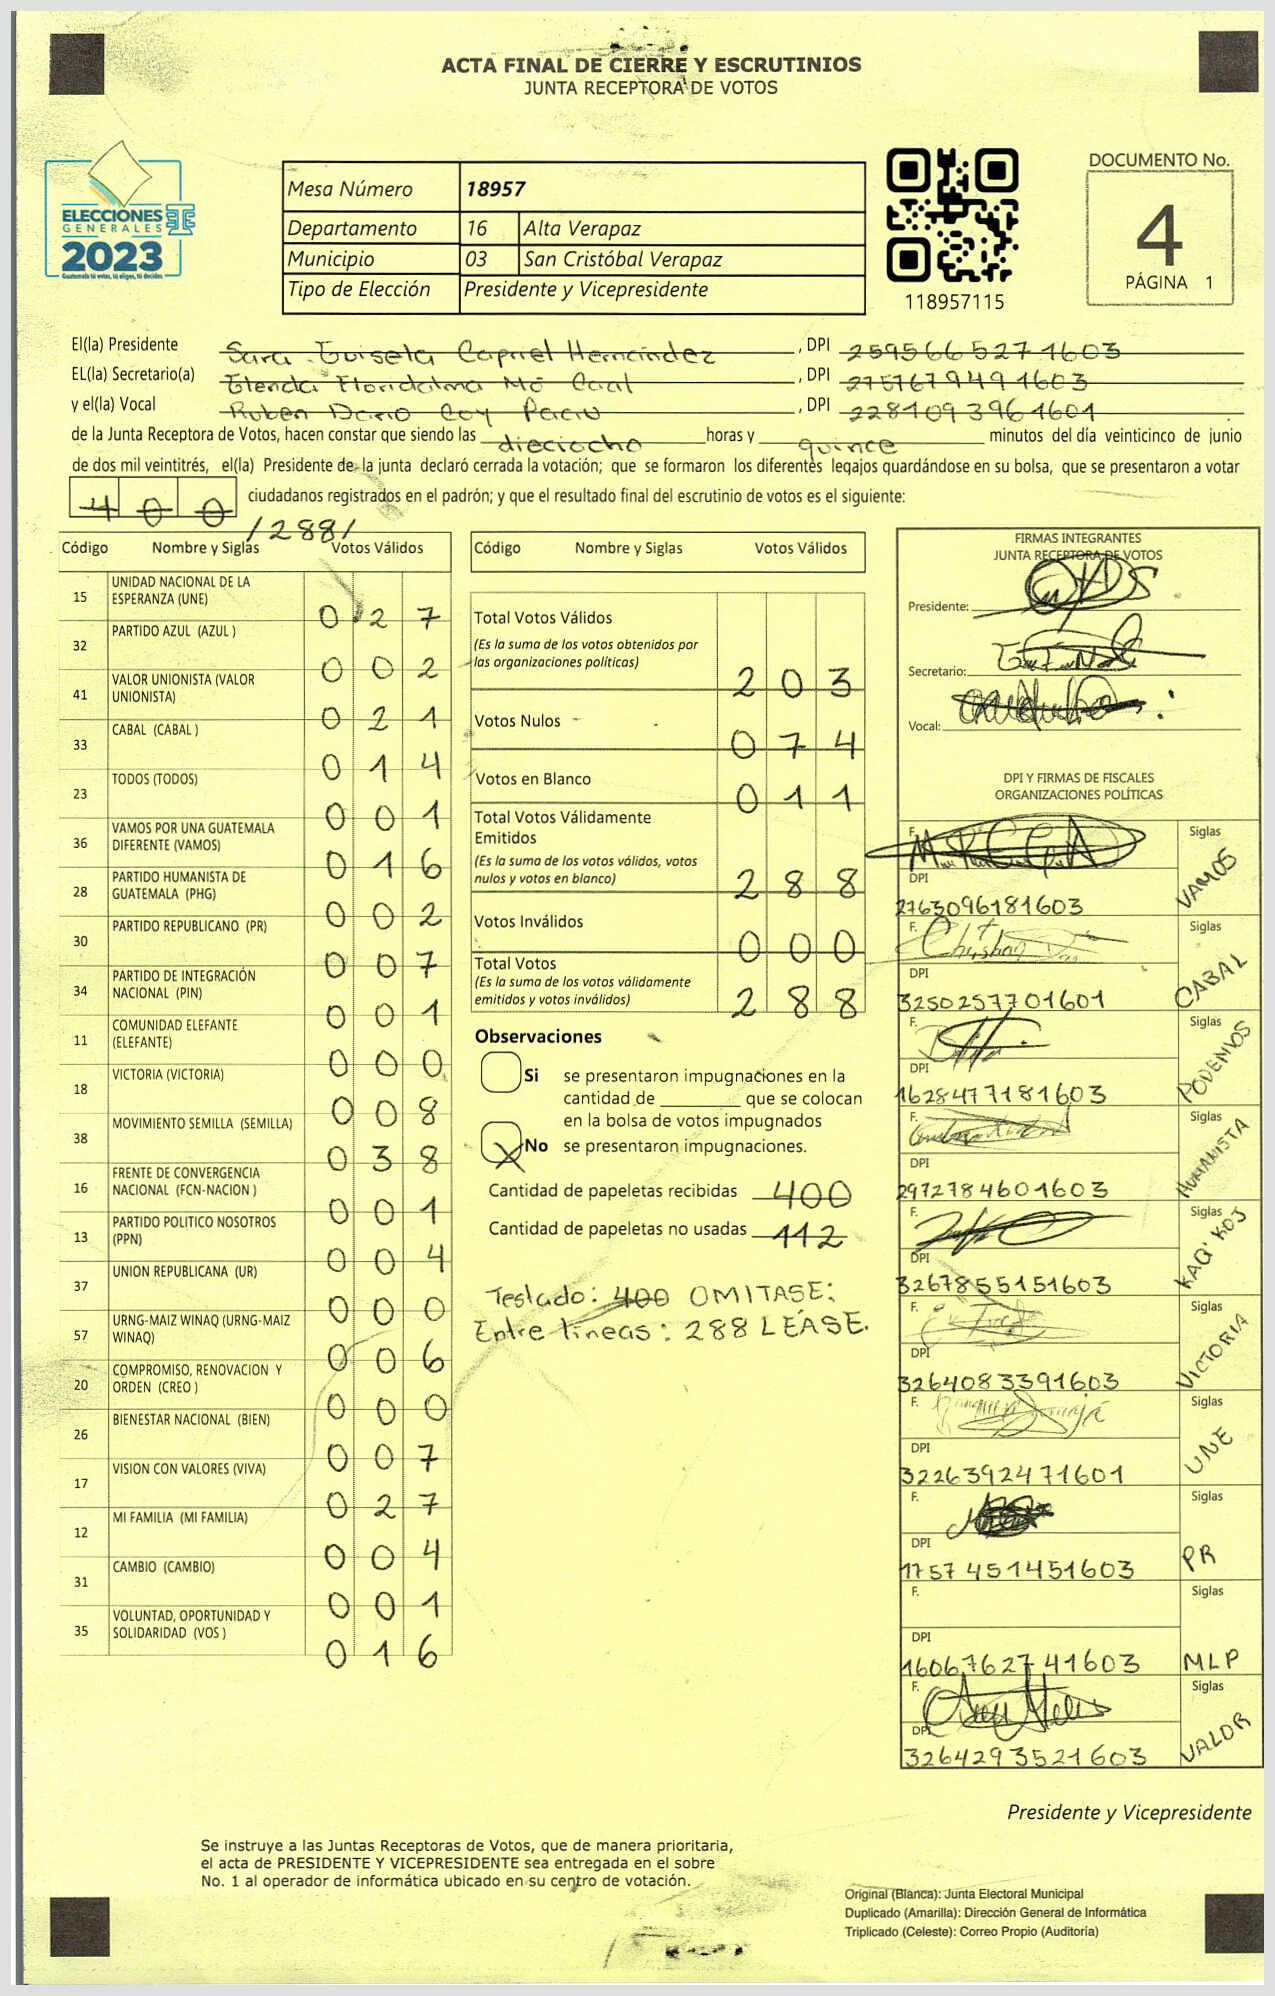 ACTA FINAL DE CIERRE Y ESCRUTINIOS
JUNTA RECEPTORA DE VOTOS
ELECCIONES
GENERALES
2023
Guatemala tú votas, tú eliges, tú decides
Mesa Número 18957
Departamento 16 Alta Verapaz
Municipio 03 San Cristóbal Verapaz
Tipo de Elección Presidente y Vicepresidente
118957115
DOCUMENTO No.
4
PÁGINA 1
El(la) Presidente Sara Guisela Capriel Hernández, DPI 2595665271603
EL(la) Secretario(a) Glenda Floridalma Mó Caal, DPI 2757679491603
y el(la) Vocal Ruben Dario Coy, DPI 2281093961601
de la Junta Receptora de Votos, hacen constar que siendo las dieciocho horas y quince minutos del día veinticinco de junio
de dos mil veintitrés, el(la) Presidente de la junta declaró cerrada la votación; que se formaron los diferentes legajos guardándose en su bolsa, que se presentaron a votar
400 ciudadanos registrados en el padrón; y que el resultado final del escrutinio de votos es el siguiente:
/288/
Código Nombre y Siglas Votos Válidos
15 UNIDAD NACIONAL DE LA ESPERANZA (UNE) 027
32 PARTIDO AZUL (AZUL ) 002
41 VALOR UNIONISTA (VALOR UNIONISTA) 021
33 CABAL (CABAL ) 014
23 TODOS (TODOS) 001
36 VAMOS POR UNA GUATEMALA DIFERENTE (VAMOS) 016
28 PARTIDO HUMANISTA DE GUATEMALA (PHG) 002
30 PARTIDO REPUBLICANO (PR) 007
34 PARTIDO DE INTEGRACIÓN NACIONAL (PIN) 001
11 COMUNIDAD ELEFANTE (ELEFANTE) 000
18 VICTORIA (VICTORIA) 008
38 MOVIMIENTO SEMILLA (SEMILLA) 038
16 FRENTE DE CONVERGENCIA NACIONAL (FCN-NACION ) 001
13 PARTIDO POLITICO NOSOTROS (PPN) 004
37 UNION REPUBLICANA (UR) 000
57 URNG-MAIZ WINAQ (URNG-MAIZ WINAQ) 006
20 COMPROMISO, RENOVACION Y ORDEN (CREO ) 000
26 BIENESTAR NACIONAL (BIEN) 007
17 VISION CON VALORES (VIVA) 027
12 MI FAMILIA (MI FAMILIA) 004
31 CAMBIO (CAMBIO) 001
35 VOLUNTAD, OPORTUNIDAD Y SOLIDARIDAD (VOS ) 016
Código Nombre y Siglas Votos Válidos
Total Votos Válidos
(Es la suma de los votos obtenidos por
las organizaciones políticas) 203
Votos Nulos 074
Votos en Blanco 011
Total Votos Válidamente
Emitidos
(Es la suma de los votos válidos, votos
nulos y votos en blanco) 288
Votos Inválidos 000
Total Votos
(Es la suma de los votos válidamente
emitidos y votos inválidos) 288
Observaciones
Si se presentaron impugnaciones en la
cantidad de ________ que se colocan
en la bolsa de votos impugnados
X No se presentaron impugnaciones.
Cantidad de papeletas recibidas 400
Cantidad de papeletas no usadas 112
Testado: 400 OMITASE:
Entre líneas: 288 LÉASE.
FIRMAS INTEGRANTES
JUNTA RECEPTORA DE VOTOS
Presidente:
Secretario:
Vocal:
DPI Y FIRMAS DE FISCALES
ORGANIZACIONES POLÍTICAS
F. Siglas
DPI
2763096181603 VAMOS
F. Siglas
DPI
3250257701601 CABAL
F. Siglas
DPI
1628477181603 PODEMOS
F. Siglas
DPI
2972784601603 HUMANISTA
F. Siglas
DPI
3267855151603 KAQ' KOJ
F. Siglas
DPI
3264083391603 VICTORIA
F. Siglas
DPI
3226392471601 UNE
F. Siglas
DPI
1757451451603 PR
F. Siglas
DPI
1606762741603 MLP
F. Siglas
DPI
3264293521603 VALOR
Presidente y Vicepresidente
Se instruye a las Juntas Receptoras de Votos, que de manera prioritaria,
el acta de PRESIDENTE Y VICEPRESIDENTE sea entregada en el sobre
No. 1 al operador de informática ubicado en su centro de votación.
Original (Blanca): Junta Electoral Municipal
Duplicado (Amarilla): Dirección General de Informática
Triplicado (Celeste): Correo Propio (Auditoría)